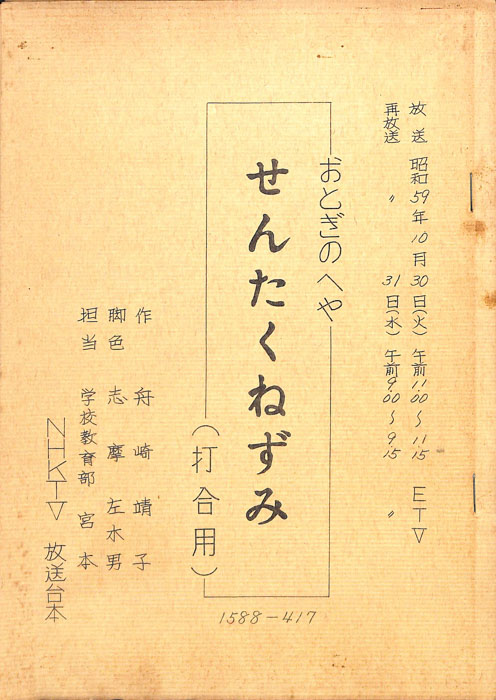 放送 昭和59年10月30日(火) 午前11:00～11:15 ETV
再放送 〃 31日(水) 午前9:00～9:15 〃
おとぎのへや
せんたくねずみ
(打合用)
作 舟崎靖子
脚色 志摩左木男
担当 学校教育部 宮本
NHKTV 放送台本
1588-417